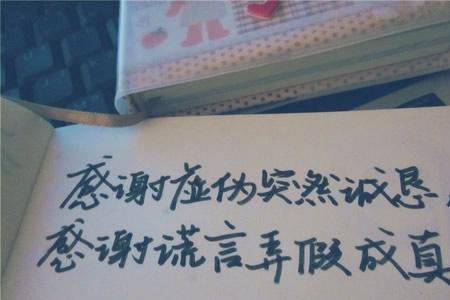 感谢虚伪突然诚恳,
感谢谎言弄假成真